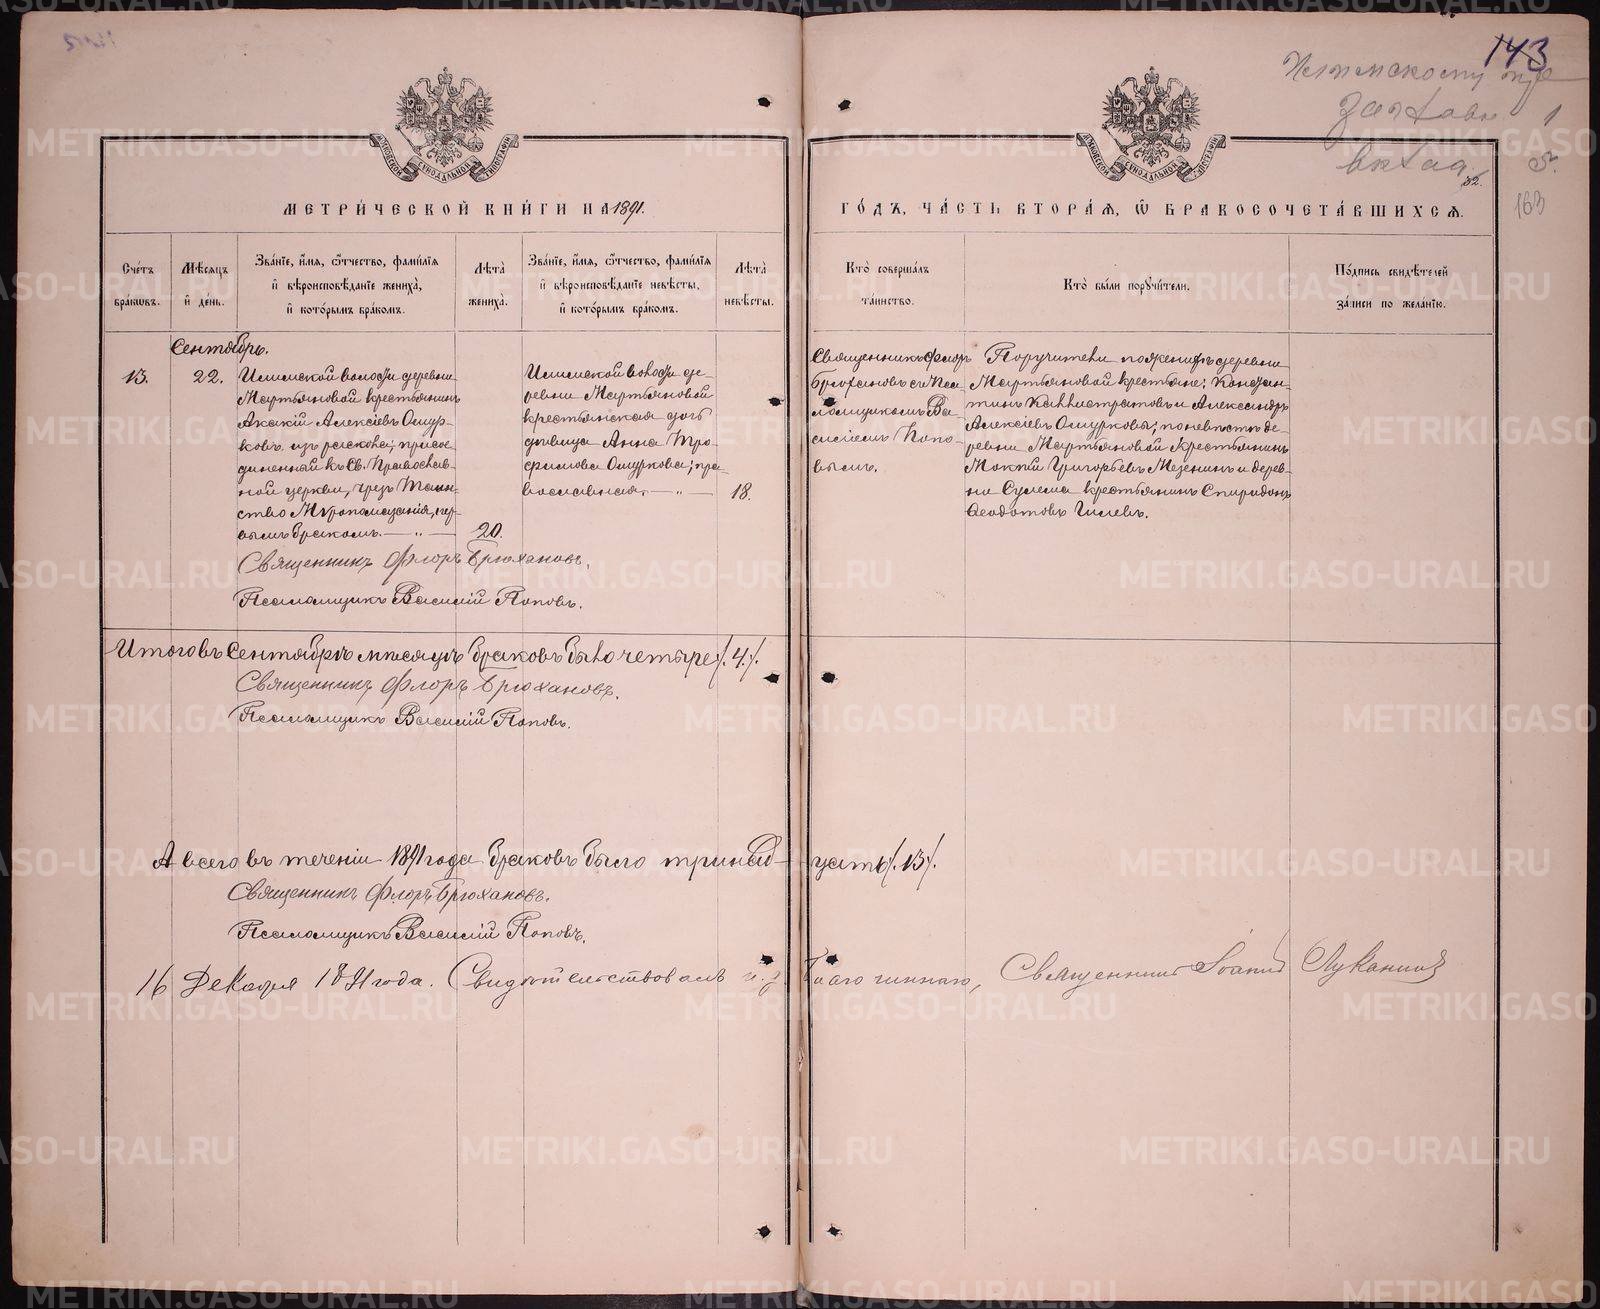 143
1
163
82.
МЕТРИ́ЧЕСКОЙ КНИ́ГИ НА 1891.
ГО́ДЪ, ЧА́СТЬ ВТОРА́Я, Ѽ БРАКОСОЧЕТА́ВШИХСЯ.
Сче́тъ браковъ.
Мѣ́сяцъ и де́нь.
Зва́нїе, и́мя, ѻ҆́тчество, фами́лїя и вѣроисповѣ́данїе жениха̀, и кото́рымъ бра́комъ.
Лѣ́та жениха̀.
Зва́нїе, и́мя, ѻ҆́тчество, фами́лїя и вѣроисповѣ́данїе невѣ́сты, и кото́рымъ бра́комъ.
Лѣ́та невѣ́сты.
Кто̀ соверша́лъ та́инство.
Кто̀ бы́ли порꙋчи́тели.
По́дпись свидѣ́телей за́писи по жела́нїю.
Сентябрь.
13.
22.
Илимской волости деревни
Мартьяновой крестьянинъ
Акакій Алексіевъ Ошур-
ковъ изъ раскола; присое-
диненный къ Св. Православ-
ной церкви, чрезъ Таин-
ство Мѵропомазанія, пер-
вымъ бракомъ. — „ —
20.
Илимской волости де-
ревни Мартьяновой
крестьянская дочь
дѣвица Анна Тро-
фимова Ошуркова; пра-
вославная. — „ —
18.
Священникъ Флоръ
Брюхановъ съ Пса-
ломщикомъ Ва-
силіемъ Попо-
вымъ.
Поручители по женихѣ деревни
Мартьяновой крестьяне: Констан-
тинъ Каллистратовъ и Александръ
Алексіевъ Ошурковы; по невѣстѣ де-
ревни Мартьяновой Крестьянинъ
Мокій Григорьевъ Мезенинъ и дерев-
ни Сулема крестьянинъ Спиридонъ
Ѳеодотовъ Гилевъ.
Священникъ Флоръ Брюхановъ.
Псаломщикъ Василій Поповъ.
Итого въ Сентябрѣ мѣсяцѣ браковъ было четыре /. 4./.
Священникъ Флоръ Брюхановъ.
Псаломщикъ Василій Поповъ.
А всего въ теченіи 1891 года браковъ было тринад-цать /. 13/.
Священникъ Флоръ Брюхановъ.
Псаломщикъ Василій Поповъ.
16 Декабря 1891 года. Свидѣтельствовалъ и. д. Благочиннаго, Священникъ Іоаннъ Луканинъ